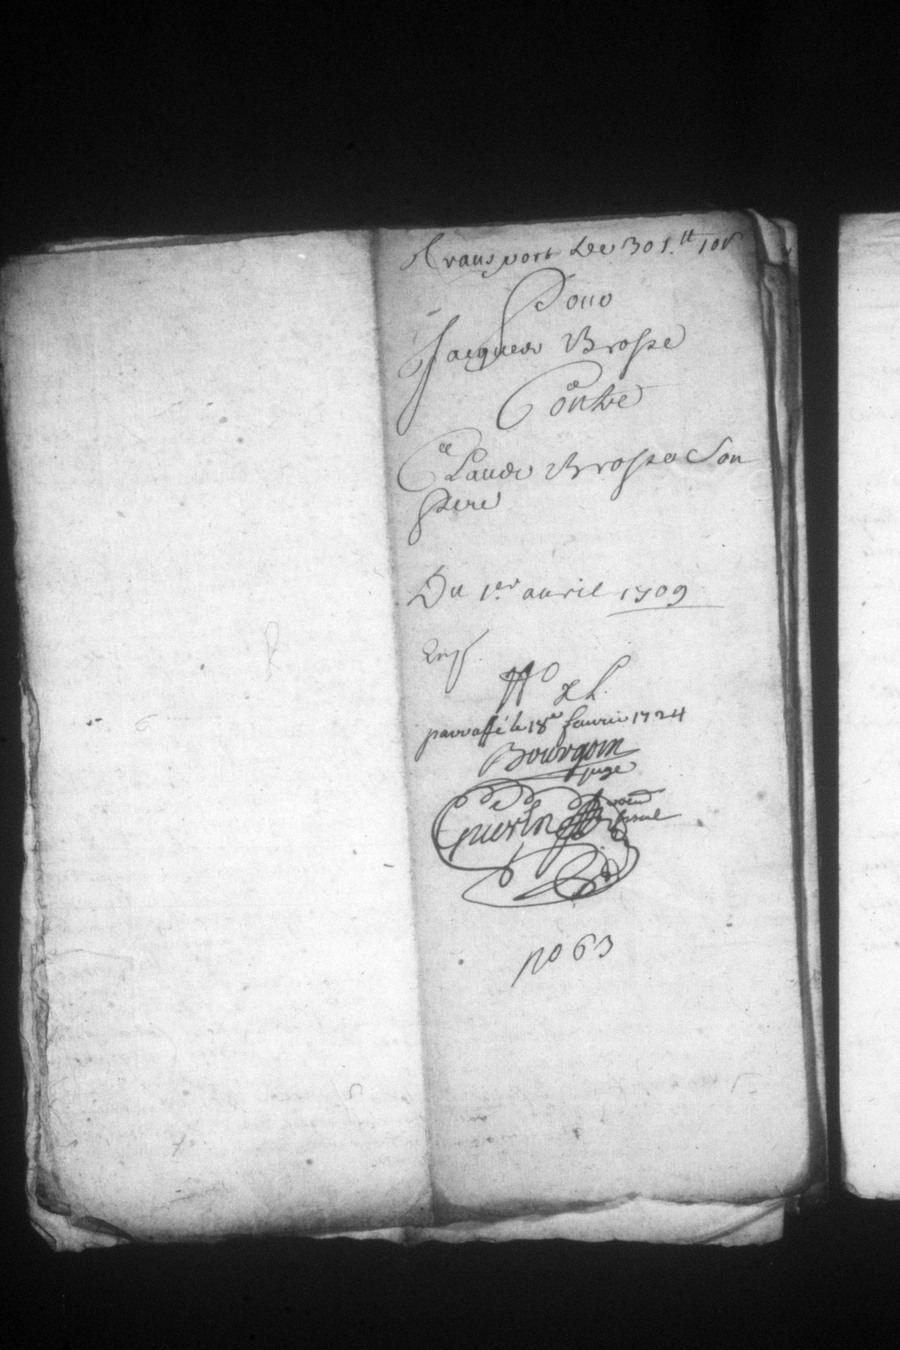 Transport De 301.tt 10s
Pour
Jacques Brosse
Contre
Claude Brosse Son
pere
Du 1er avril 1709
parraffé le 18e feuvrier 1724
Bourgoin
juge
Guerin procu
fiscal
no 63